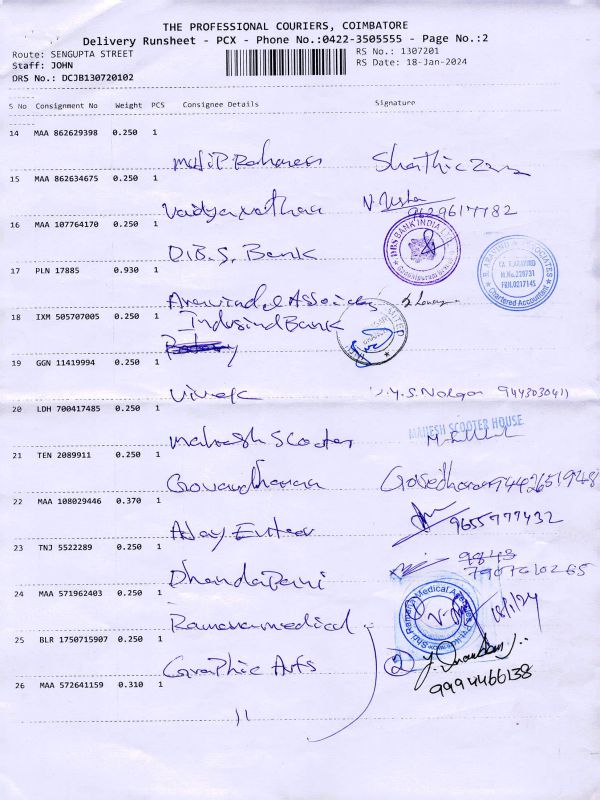 THE PROFESSIONAL COURIERS, COIMBATORE
Delivery Runsheet - PCX - Phone No.:0422-3505555 - Page No.:2
Route: SENGUPTA STREET
RS No.: 1307201
Staff: JOHN
RS Date: 18-Jan-2024
DRS No.: DCJB130720102
S No Consignment No Weight PCS Consignee Details Signature
14 MAA 862629398 0.250 1
15 MAA 862634675 0.250 1
Vaidyanathan
9629617782
16 MAA 107764170 0.250 1
D.B.S. Bank
DBS BANK INDIA LTD
17 PLN 17885 0.930 1
ASSOCIATES
M.No.220731
Chartered Accountant
Associates
18 IXM 505707005 0.250 1
Indusind Bank
19 GGN 11419994 0.250 1
Vivek
9443030411
20 LDH 700417485 0.250 1
Mahesh Scooter
MAHESH SCOOTER HOUSE
21 TEN 2089911 0.250 1
Govardhanan
9442651948
22 MAA 108029446 0.370 1
Ajay Enter
9655777432
23 TNJ 5522289 0.250 1
9843
7907610265
Dhandapani
24 MAA 571962403 0.250 1
Ramana medical
18/1/24
25 BLR 1750715907 0.250 1
Graphic Arts
2
9994466138
26 MAA 572641159 0.310 1
11